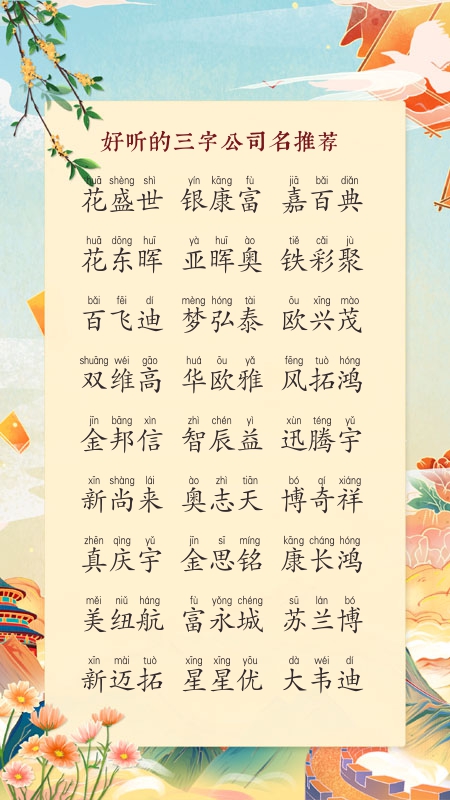 好听的三字公司名推荐
huā shèng shì yín kāng fù jiā bǎi diǎn
花盛世 银康富 嘉百典
huā dōng huī yà huī ào tiě cǎi jù
花东晖 亚晖奥 铁彩聚
bǎi fēi dí mèng hóng tài ōu xīng mào
百飞迪 梦弘泰 欧兴茂
shuāng wéi gāo huá ōu yǎ fēng tuò hóng
双维高 华欧雅 风拓鸿
jīn bāng xìn zhì chén yì xùn téng yǔ
金邦信 智辰益 迅腾宇
xīn shàng lái ào zhì tiān bó qí xiáng
新尚来 奥志天 博奇祥
zhēn qìng yǔ jīn sī míng kāng cháng hóng
真庆宇 金思铭 康长鸿
měi niǔ háng fù yǒng chéng sū lán bó
美纽航 富永城 苏兰博
xīn mài tuò xīng xīng yōu dà wéi dí
新迈拓 星星优 大韦迪